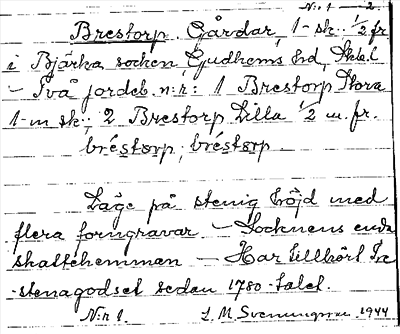 N:r 1 — 2
Brestorp. Gårdar, 1 sk. ½ fr
i Bjärka socken Gudhems hd, Skbl
– Två jordeb. n:r: 1 Brestorp Stora
1 m sk.; 2 Brestorp Lilla ½ m. fr.
bréstɷrp, bréstɷrp.
Läge på stenig höjd med
flera forngravar. – Socknens enda
skattehemman – Har tillhört
-stenagodset sedan 1780-talet.
N:r 1. L. M. Svenungsson 1944